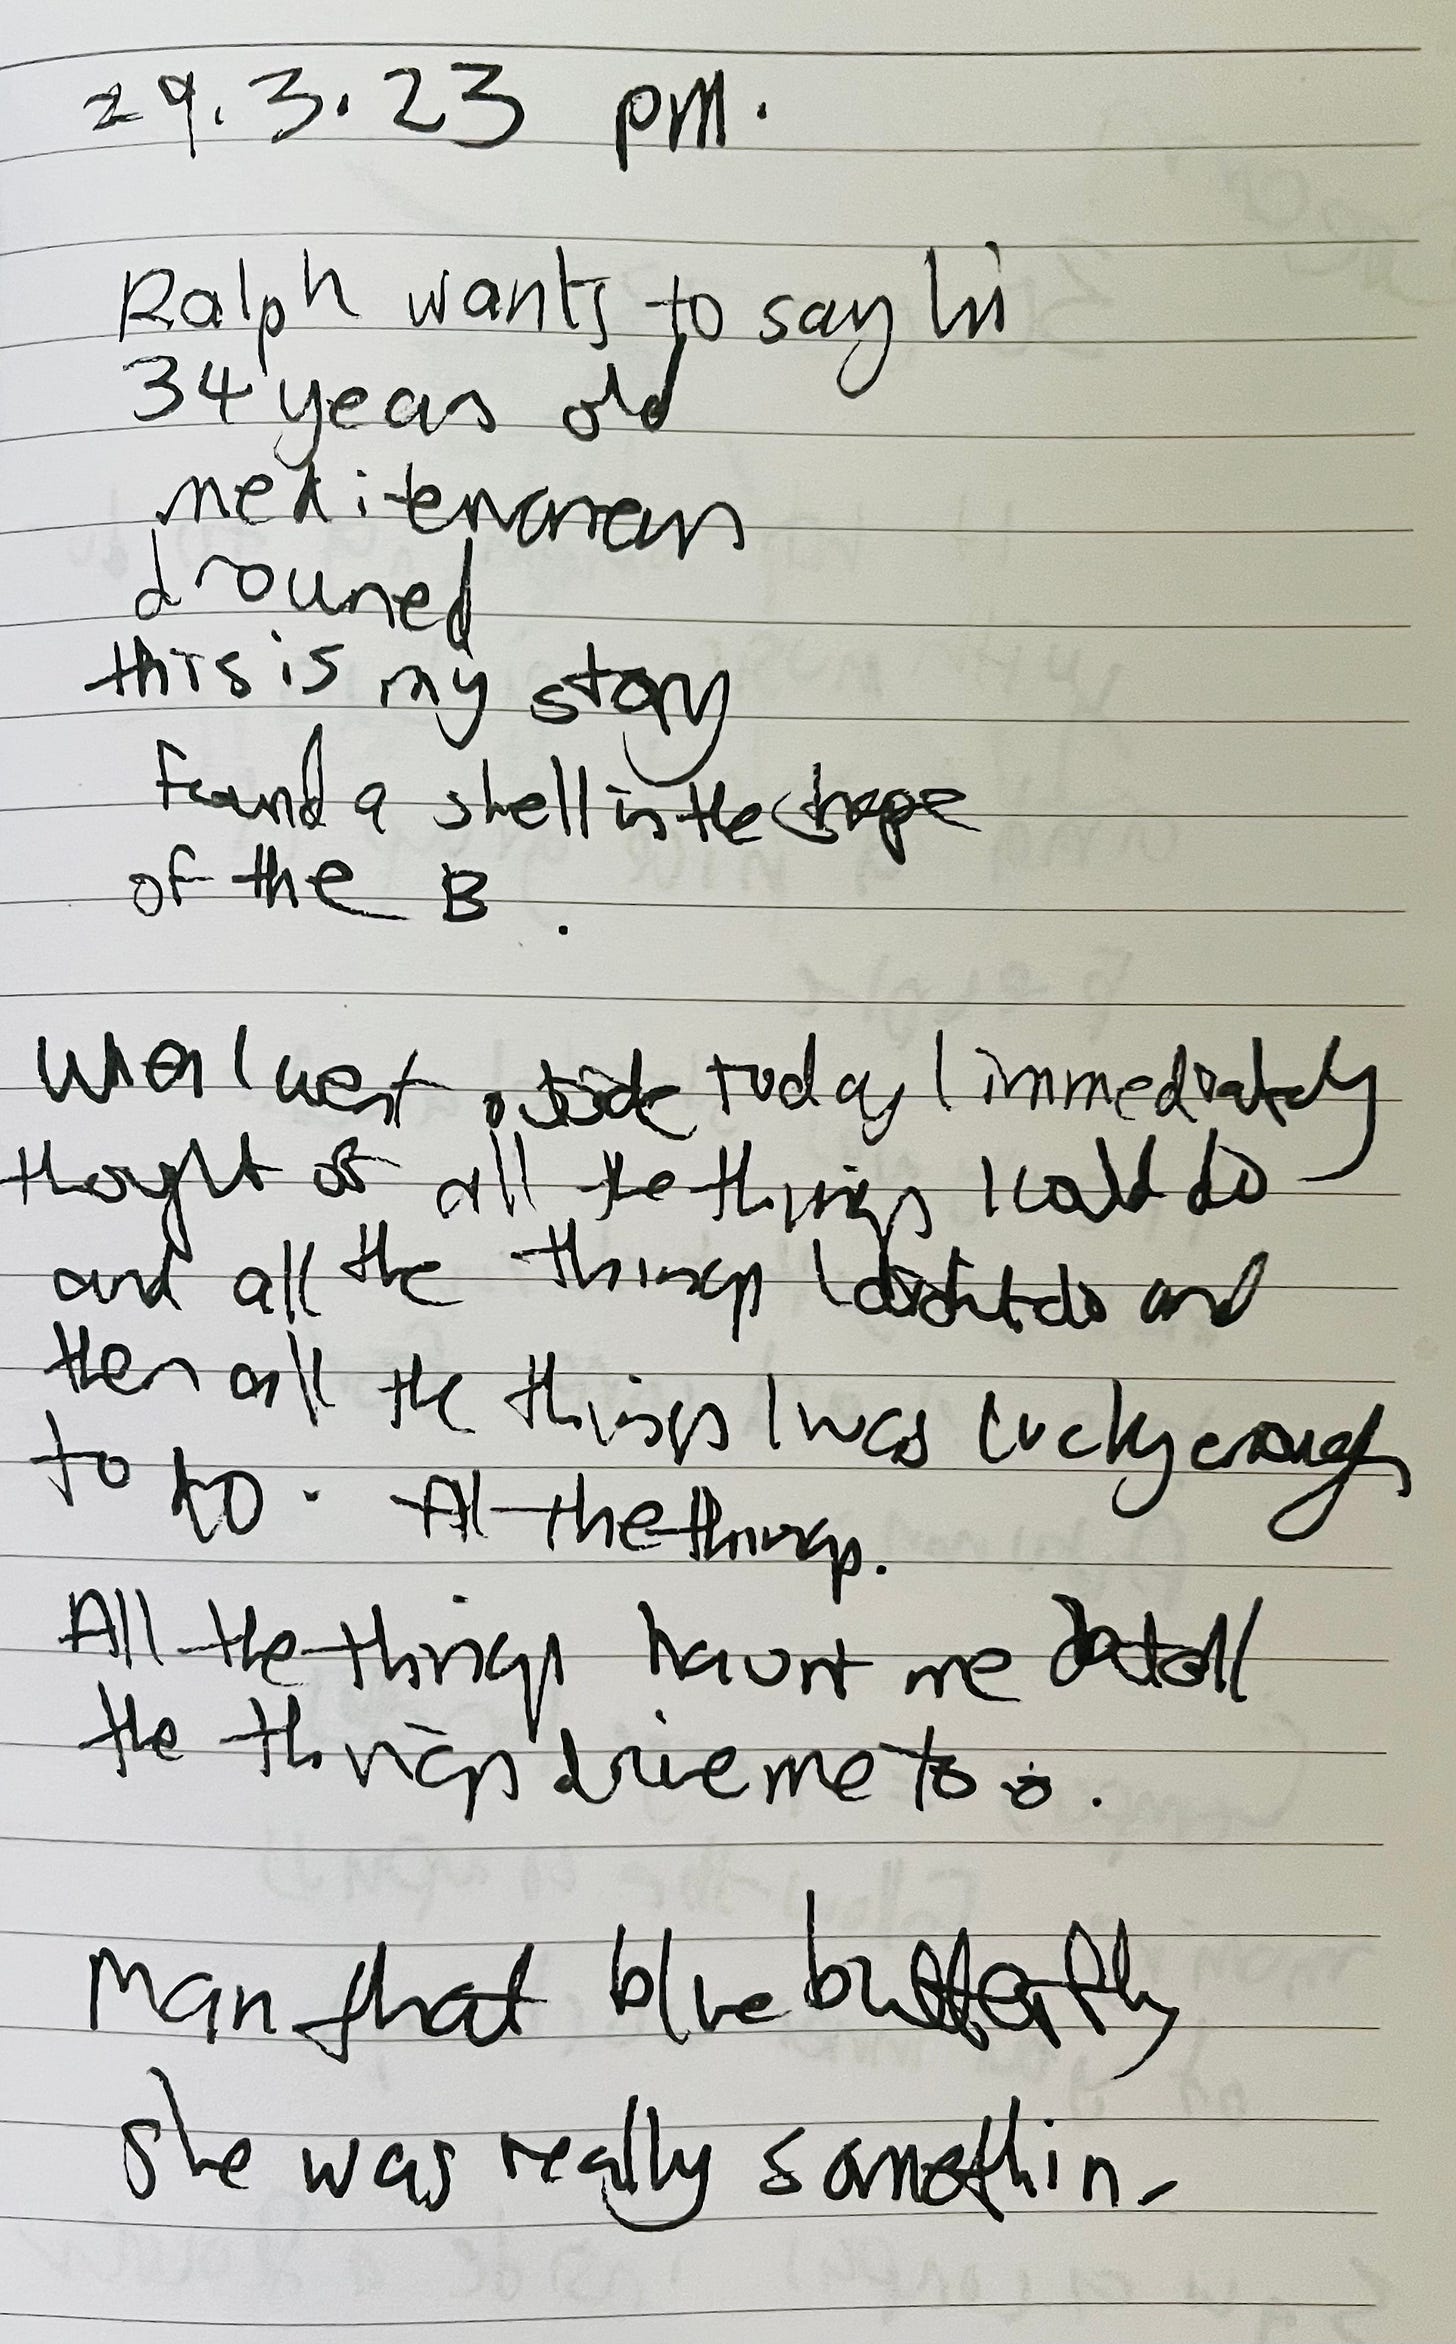 29.3.23 pm.
Ralph wants to say hi
34 years old
mediterranean
drowned
this is my story
found a shell in the shape
of the B.
When I went outside today I immediately
thought of all the things I could do
and all the things I didn't do and
then all the things I was lucky enough
to do. All the things.
All the things haunt me but all
the things drive me too.
Man that blue butterfly
she was really somethin